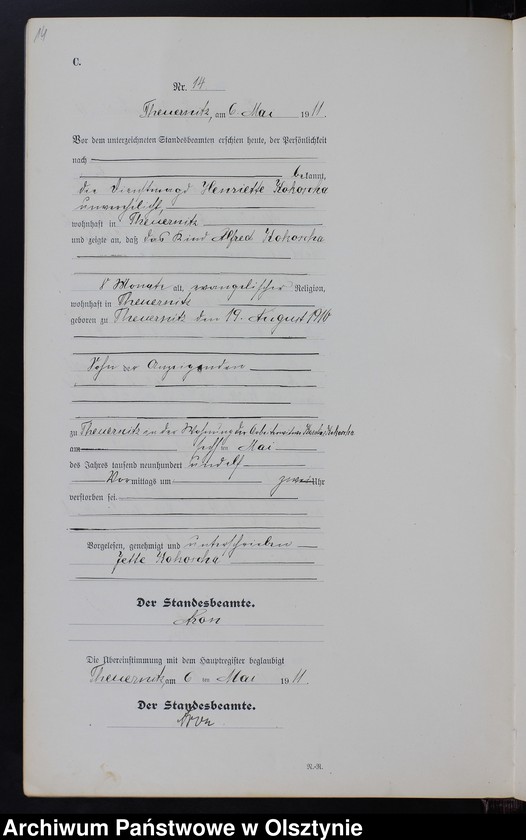 14
C.
Nr. 14
Theuernitz, am 6 Mai 1911.
Vor dem unterzeichneten Standesbeamten erschien heute, der Persönlichkeit
nach
bekannt,
die Dienstmagd Henriette Kokoscha
unverehelicht,
wohnhaft in Theuernitz
und zeigte an, daß das Kind Alfred Kokoscha
8 Monate alt, evangelischer Religion,
wohnhaft in Theuernitz
geboren zu Theuernitz den 19. August 1910
Sohn der Anzeigenden
zu Theuernitz in der Wohnung der Kokoscha
am sechsten Mai
des Jahres tausend neunhundert und elf
Vormittags um zwei Uhr
verstorben sei.
Vorgelesen, genehmigt und unterschrieben
Jette Kokoscha
Der Standesbeamte.
Die Übereinstimmung mit dem Hauptregister beglaubigt
Theuernitz, am 6 ten Mai 1911.
Der Standesbeamte.
N.-R.
Archiwum Państwowe w Olsztynie